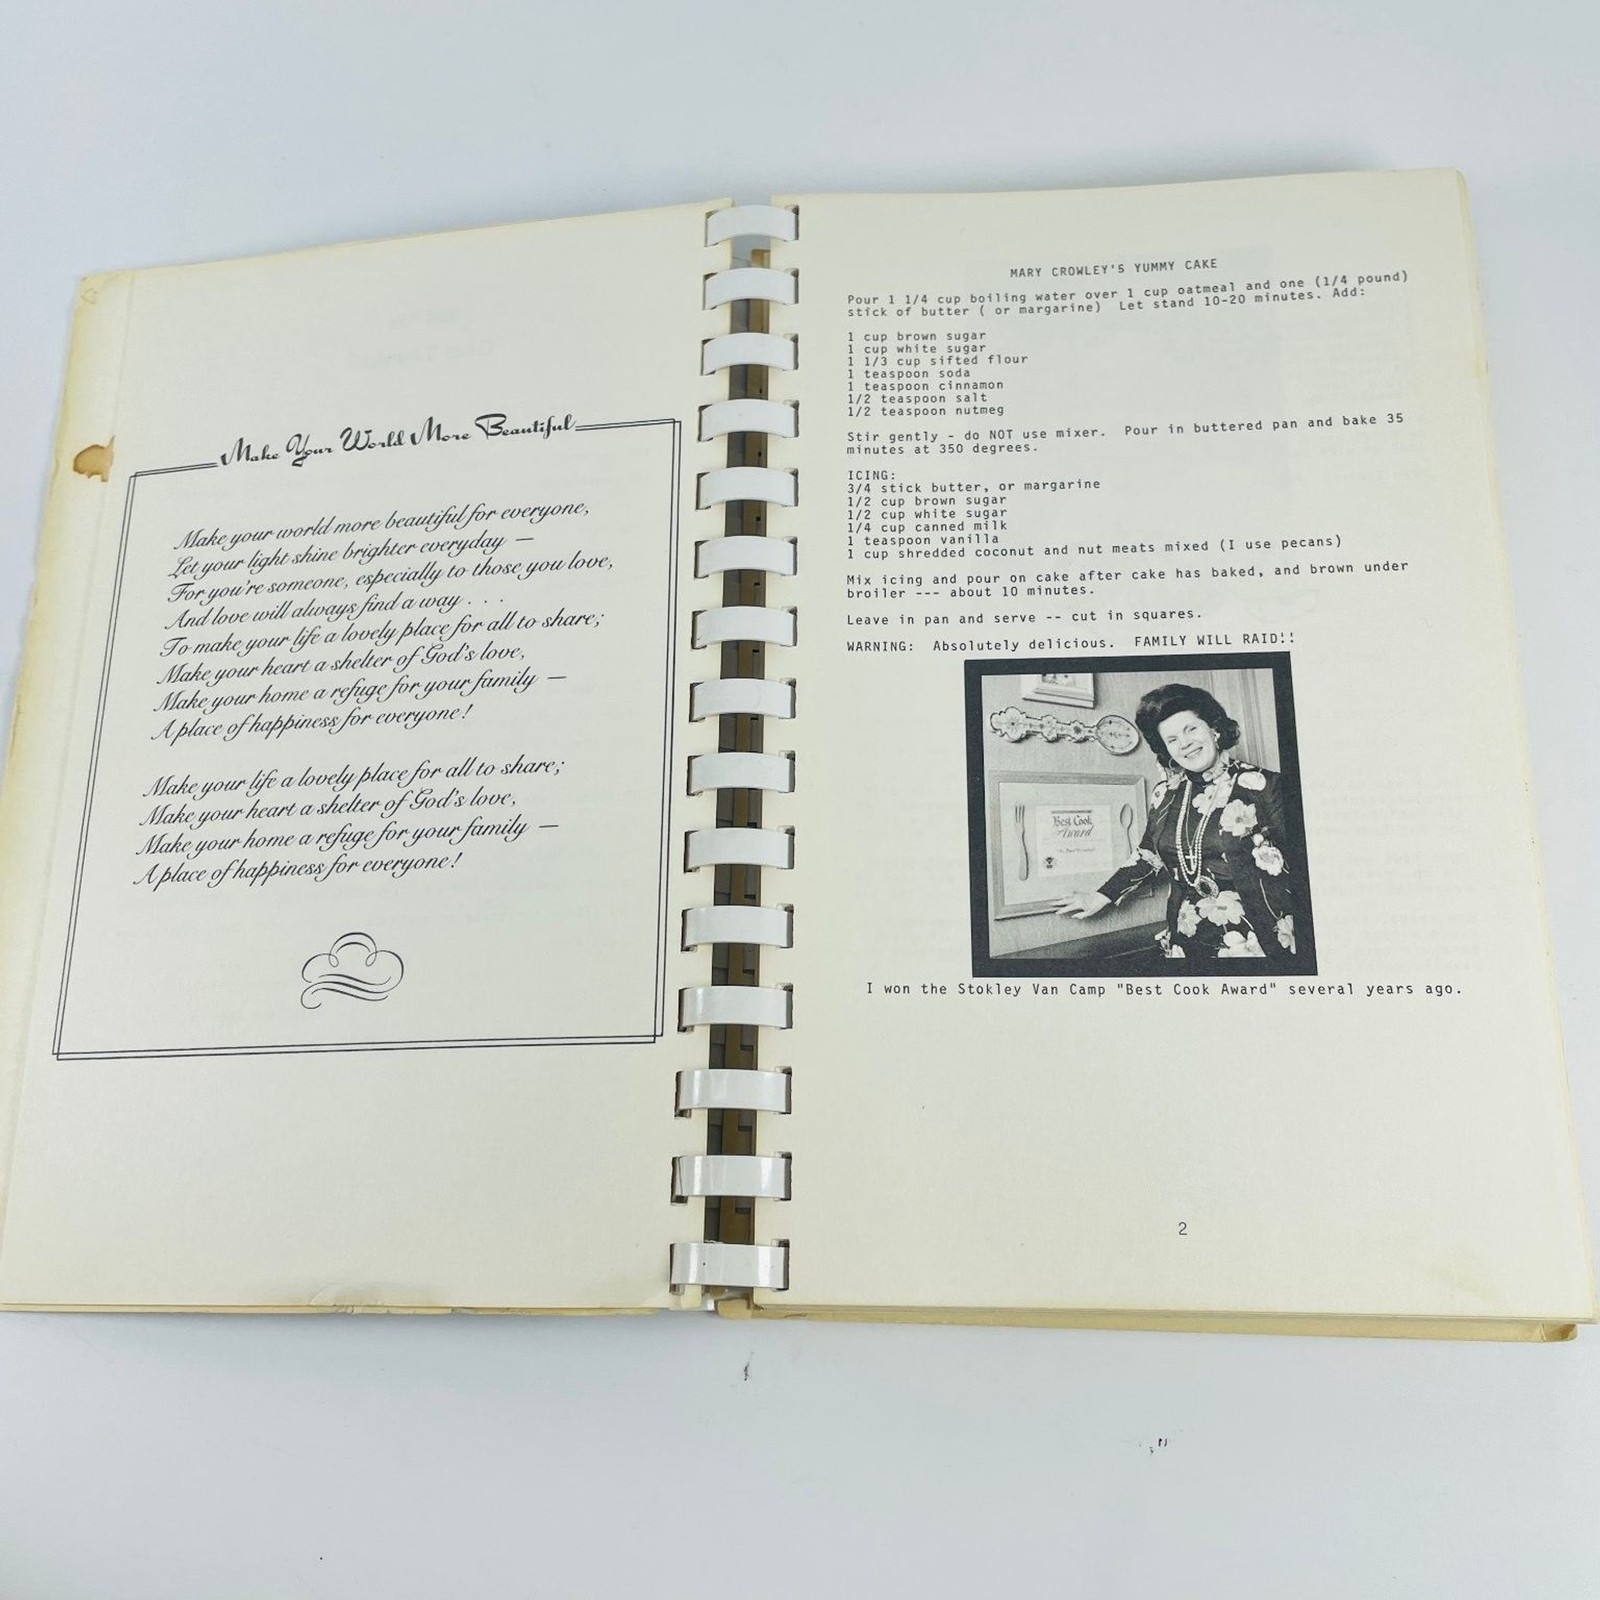 Make Your World More Beautiful
Make your world more beautiful for everyone,
Let your light shine brighter everyday —
For you're someone, especially to those you love,
And love will always find a way . . .
To make your life a lovely place for all to share;
Make your heart a shelter of God's love,
Make your home a refuge for your family —
A place of happiness for everyone!
Make your life a lovely place for all to share;
Make your heart a shelter of God's love,
Make your home a refuge for your family —
A place of happiness for everyone!
MARY CROWLEY'S YUMMY CAKE
Pour 1 1/4 cup boiling water over 1 cup oatmeal and one (1/4 pound)
stick of butter ( or margarine)  Let stand 10-20 minutes. Add:
1 cup brown sugar
1 cup white sugar
1 1/3 cup sifted flour
1 teaspoon soda
1 teaspoon cinnamon
1/2 teaspoon salt
1/2 teaspoon nutmeg
Stir gently - do NOT use mixer.  Pour in buttered pan and bake 35
minutes at 350 degrees.
ICING:
3/4 stick butter, or margarine
1/2 cup brown sugar
1/2 cup white sugar
1/4 cup canned milk
1 teaspoon vanilla
1 cup shredded coconut and nut meats mixed (I use pecans)
Mix icing and pour on cake after cake has baked, and brown under
broiler --- about 10 minutes.
Leave in pan and serve -- cut in squares.
WARNING:  Absolutely delicious.  FAMILY WILL RAID!!
Best Cook
Award
I won the Stokley Van Camp "Best Cook Award" several years ago.
2